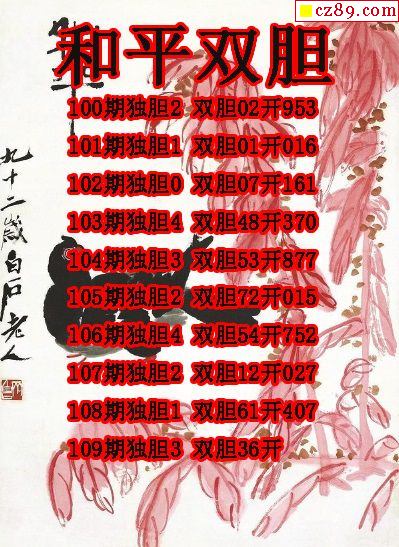 cz89.com
和平双胆
100期独胆2 双胆02开953
101期独胆1 双胆01开016
102期独胆0 双胆07开161
103期独胆4 双胆48开370
104期独胆3 双胆53开877
105期独胆2 双胆72开015
106期独胆4 双胆54开752
107期独胆2 双胆12开027
108期独胆1 双胆61开407
109期独胆3 双胆36开
九十二歲白石老人